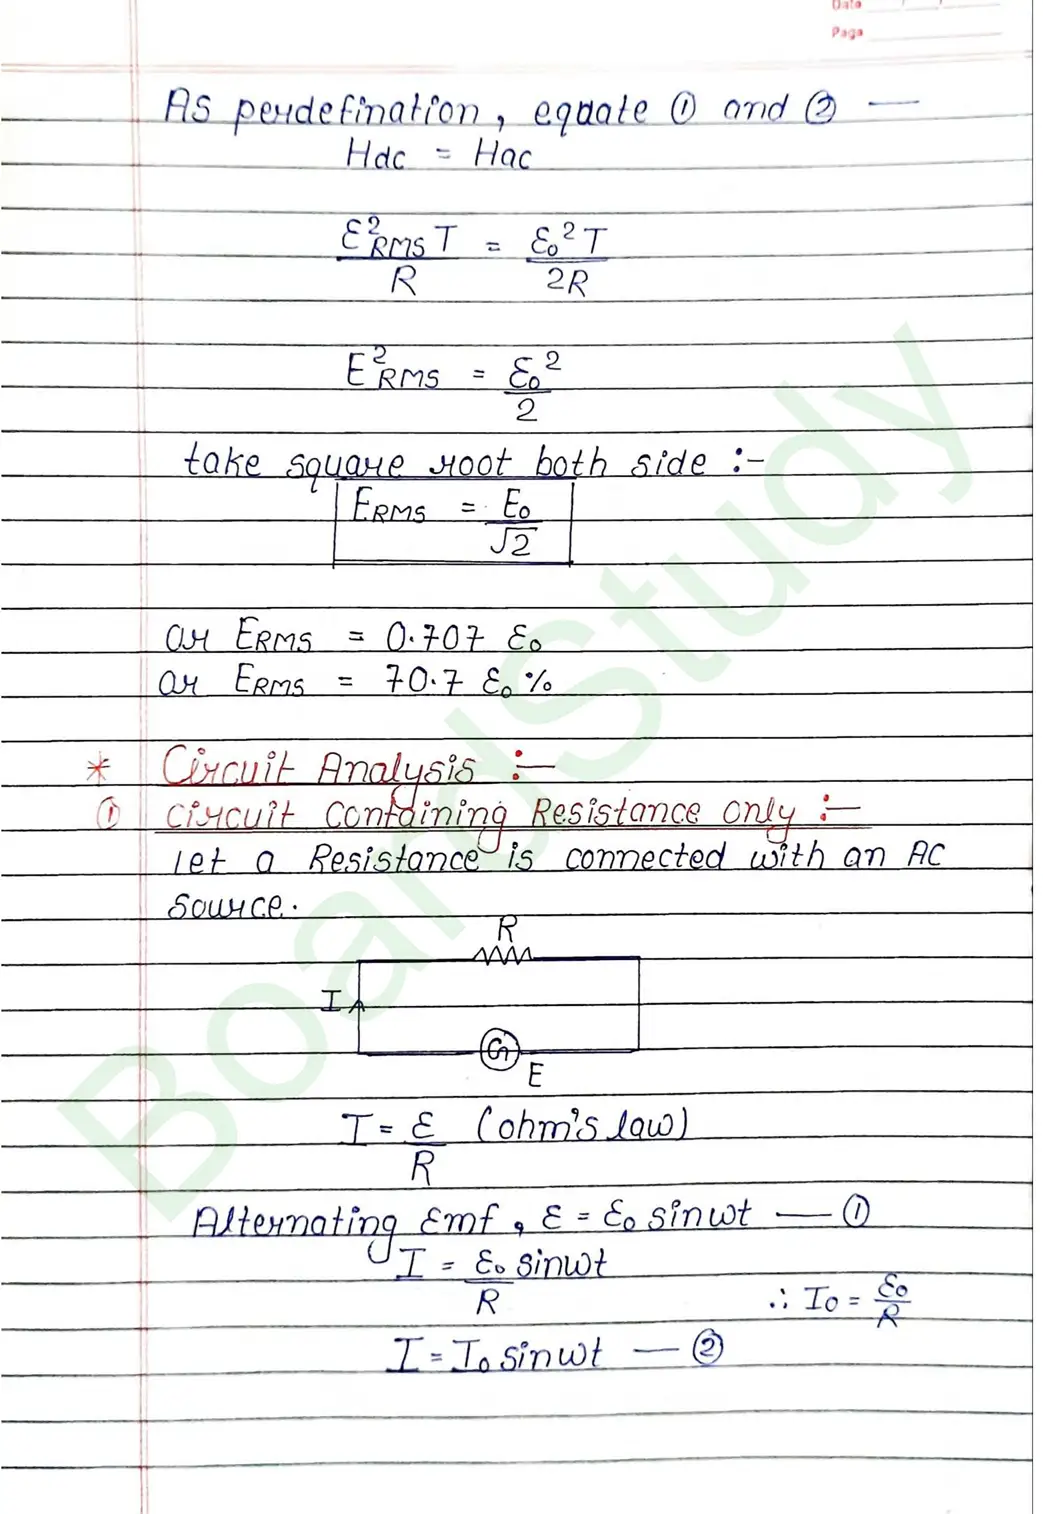 Date
Page
As perdefination, equate ① and ② —
Hdc = Hac
ε²RMS T / R = ε₀² T / 2R
E²RMS = ε₀² / 2
take square root both side :-
ERMS = E₀ / √2
or ERMS = 0.707 ε₀
or ERMS = 70.7 ε₀ %
* Circuit Analysis :—
① circuit containing Resistance only :—
let a Resistance is connected with an AC
source.
R
I
G
E
I = ε / R (ohm's law)
Alternating Emf, ε = ε₀ sinwt — ①
I = ε₀ sinwt / R
∴ I₀ = ε₀ / R
I = I₀ sinwt — ②
BoardStudy